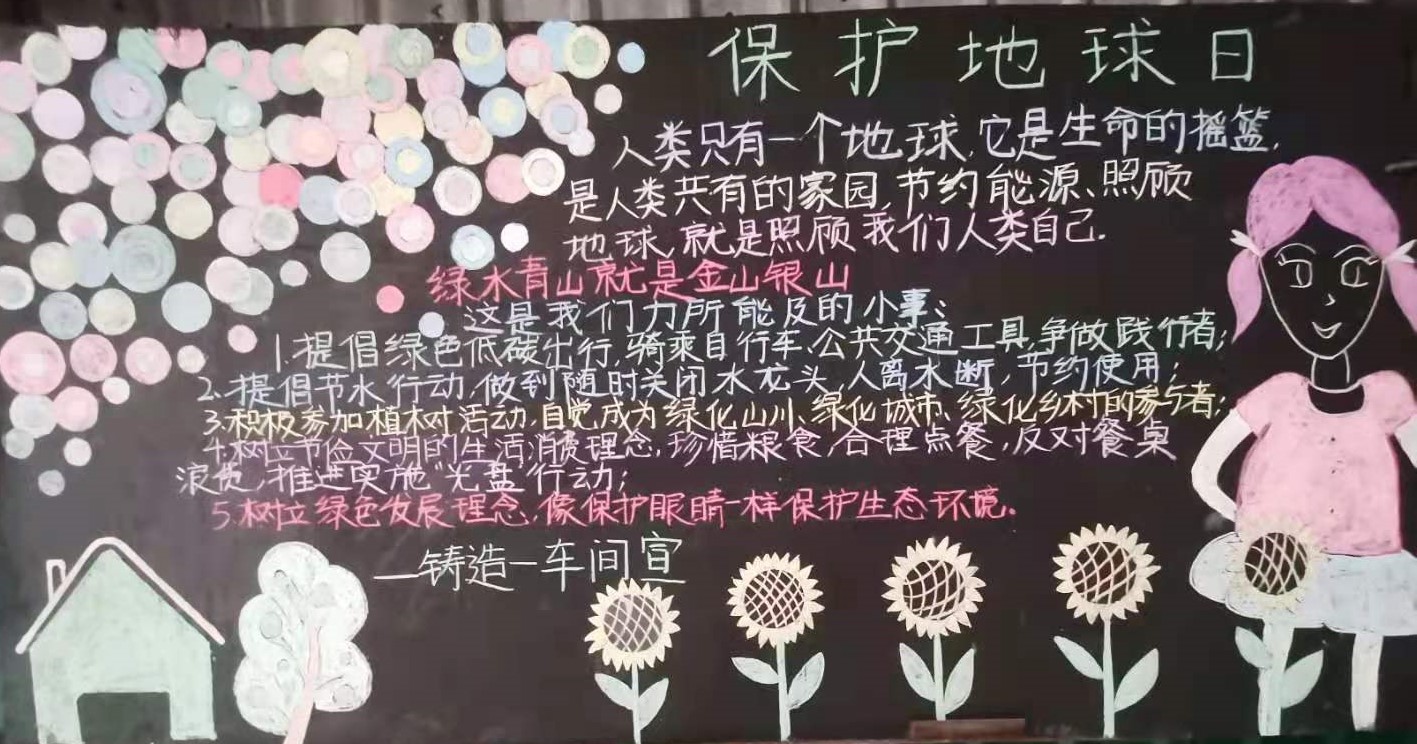 保护地球日
人类只有一个地球,它是生命的摇篮,
是人类共有的家园,节约能源、照顾
地球,就是照顾我们人类自己.
绿水青山就是金山银山
这是我们力所能及的小事:
1.提倡绿色低碳出行,骑乘自行车、公共交通工具,争做践行者;
2.提倡节水行动,做到随时关闭水龙头,人离水断,节约使用;
3.积极参加植树活动,自觉成为绿化山川、绿化城市、绿化乡村的参与者;
4.树立节俭文明的生活消费理念,珍惜粮食,合理点餐,反对餐桌
浪费,推进实施"光盘"行动;
5.树立绿色发展理念,像保护眼睛一样保护生态环境.
—铸造一车间宣